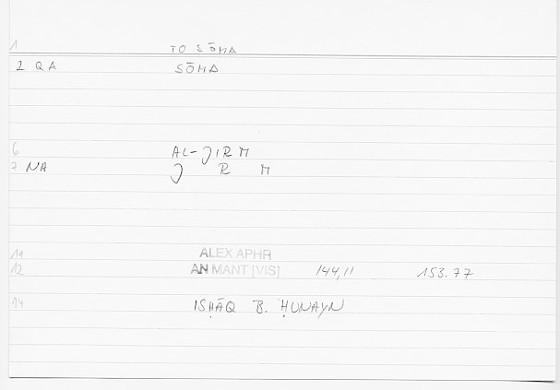 1 TO SŌMA
2 QA SŌMA
6 AL-JIRM
7 NA J R M
11 ALEX APHR
12 AN MANT [VIS] 144,11 153.77
14 ISḤĀQ B. ḤUNAYN